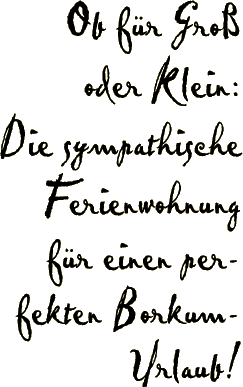 Ob für Groß
oder Klein:
Die sympathische
Ferienwohnung
für einen per-
fekten Borkum-
Urlaub!